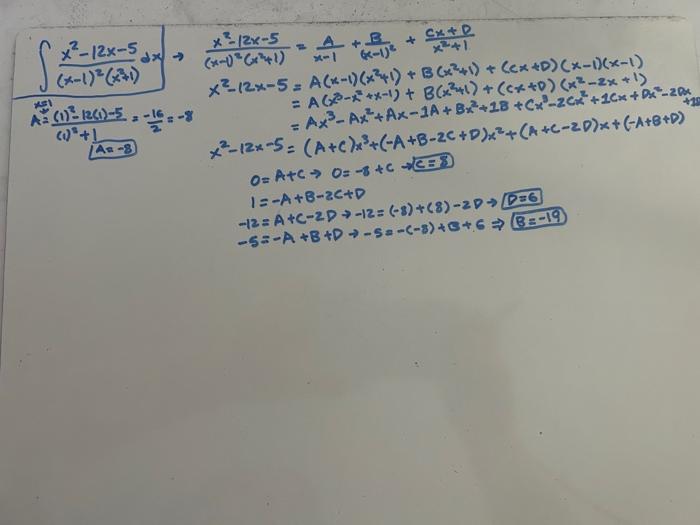 ∫ x²-12x-5 / (x-1)²(x²+1) dx → x²-12x-5 / (x-1)²(x²+1) = A/x-1 + B/(x-1)² + Cx+D/x²+1
x²-12x-5 = A(x-1)(x²+1) + B(x²+1) + (Cx+D)(x-1)(x-1)
= A(x³-x²+x-1) + B(x²+1) + (Cx+D)(x²-2x+1)
= Ax³-Ax²+Ax-1A+Bx²+1B+Cx³-2Cx²+1Cx+Dx²-2Dx
x=1
A = (1)²-12(1)-5 / (1)²+1 = -16/2 = -8
A=-8
x²-12x-5 = (A+C)x³+(-A+B-2C+D)x²+(A+C-2D)x+(-A+B+D)
0=A+C → 0=-8+C → C=8
1=-A+B-2C+D
-12=A+C-2D → -12=(-8)+(8)-2D → D=6
-5=-A+B+D → -5=-(-8)+B+6 ⇒ B=-19